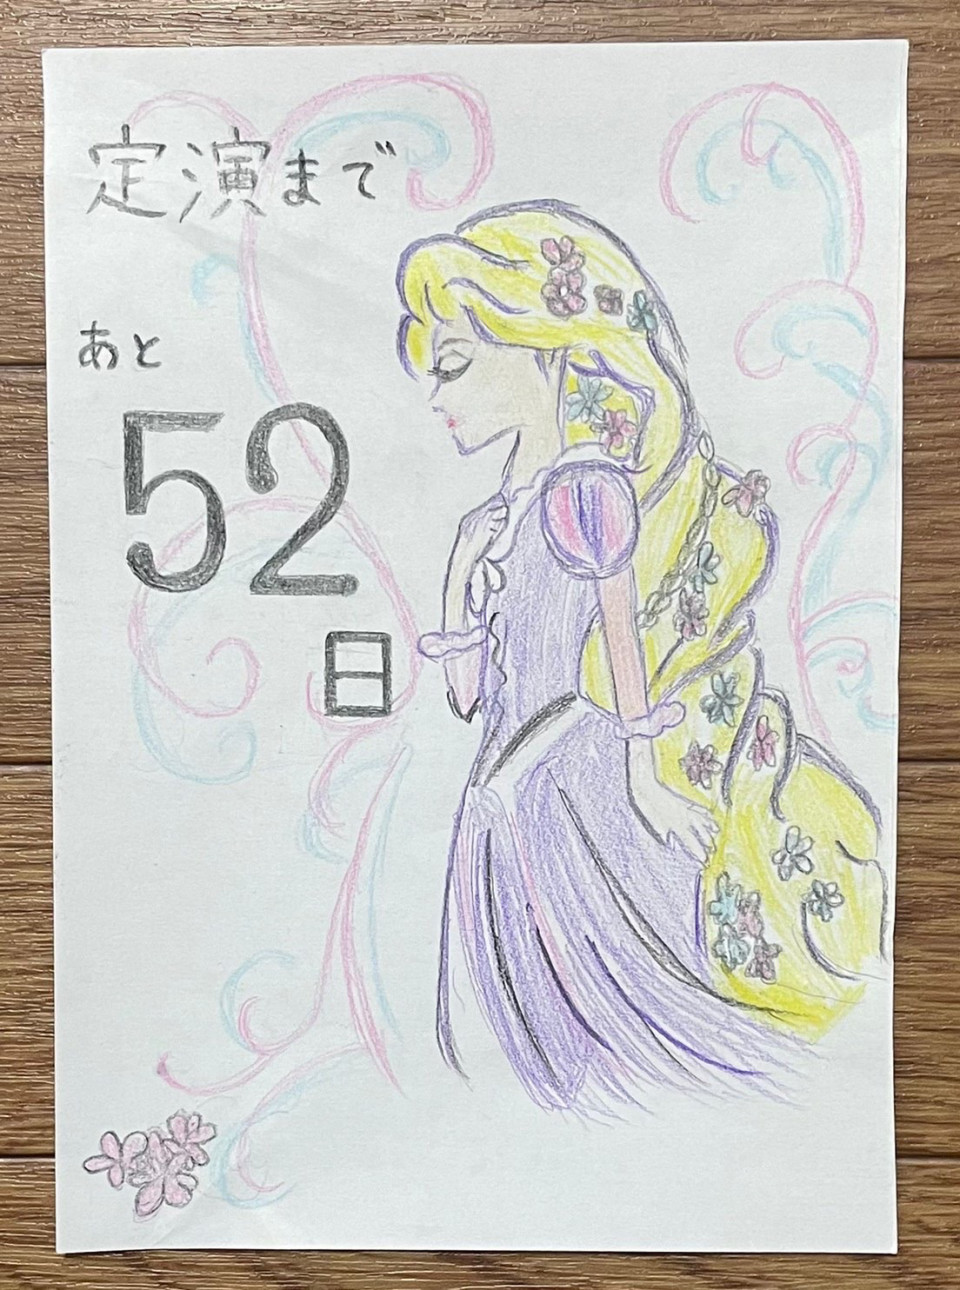 定演まで
あと
52
日